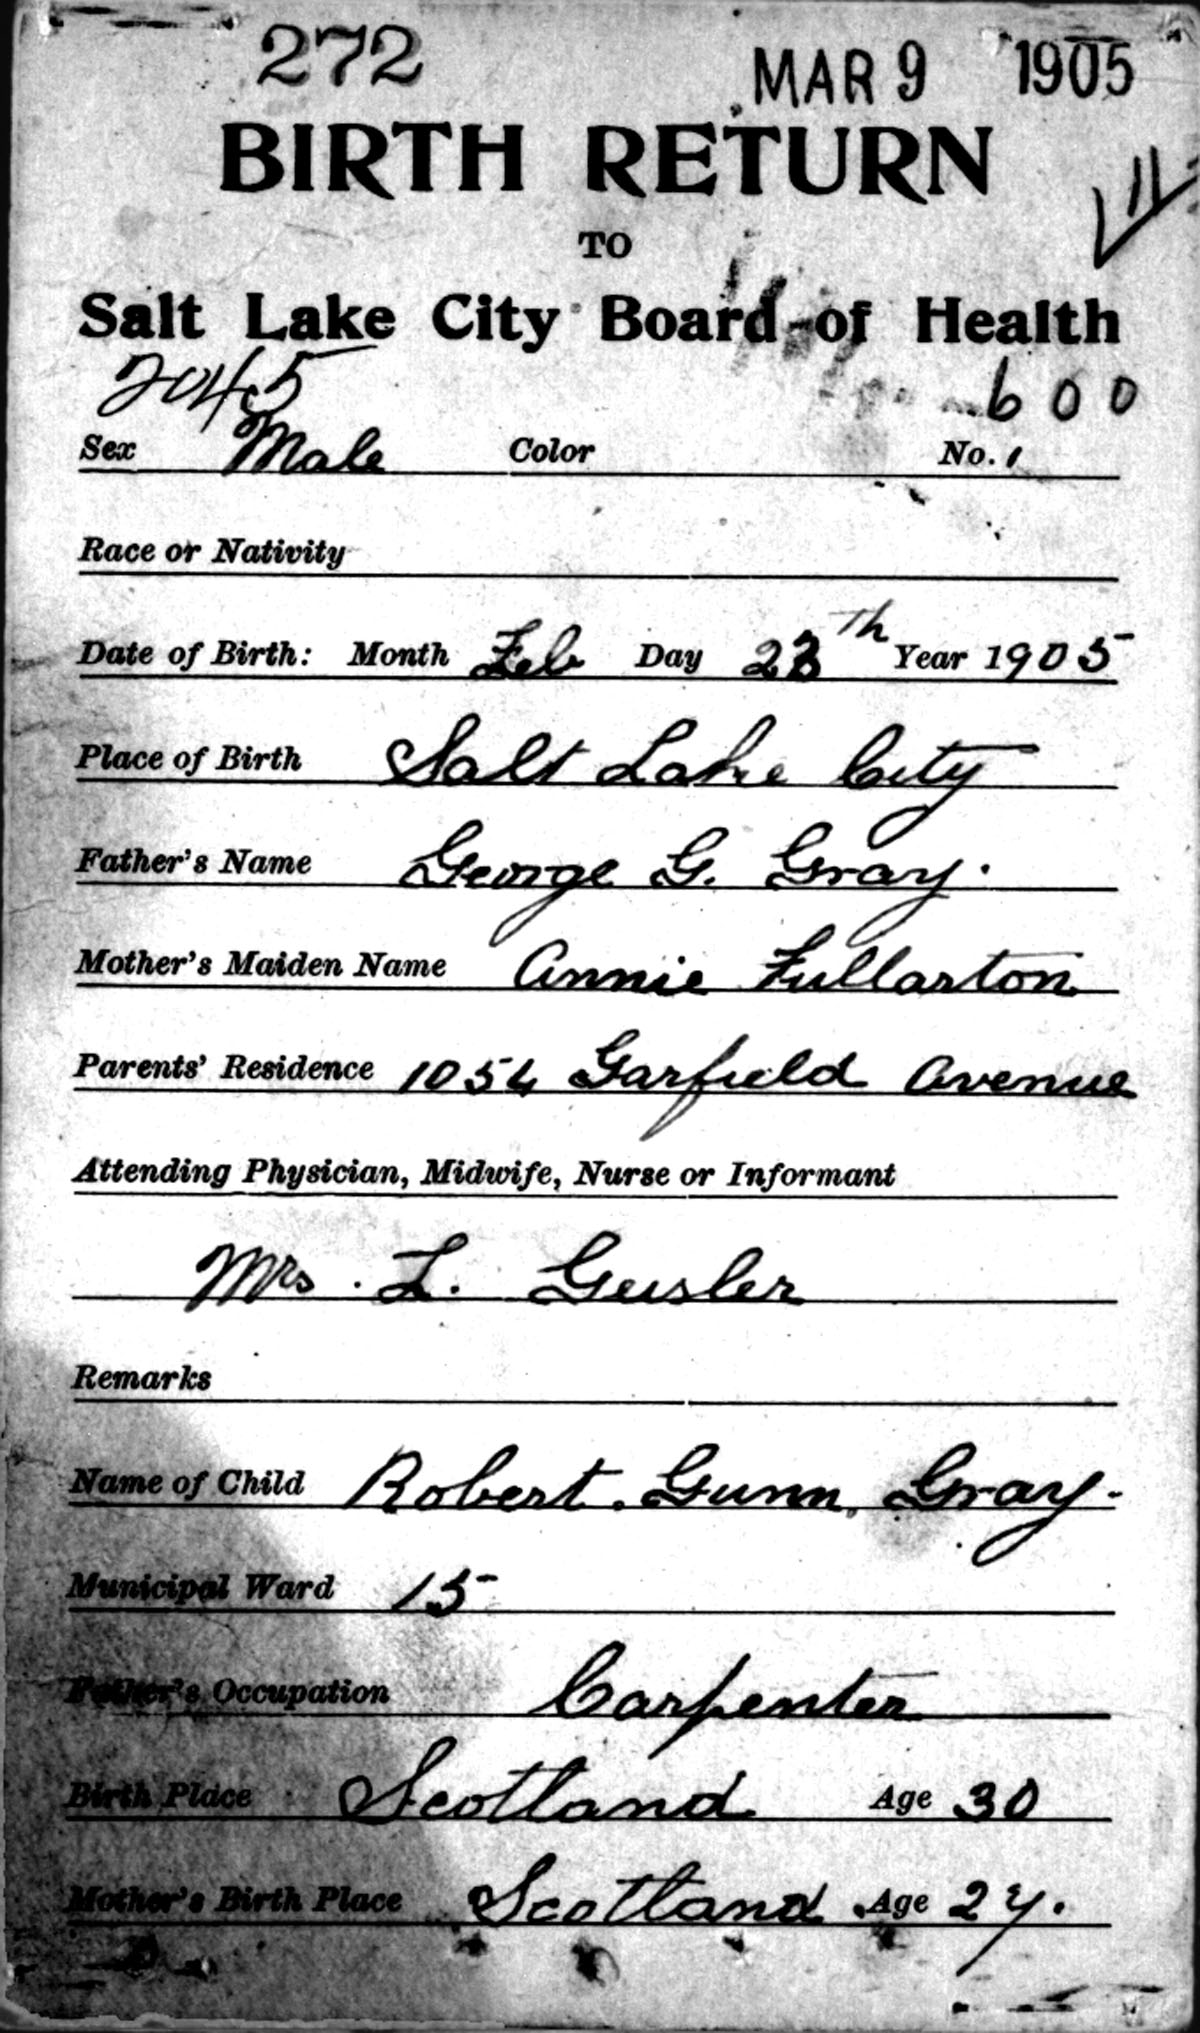 272 MAR 9 1905
BIRTH RETURN
TO
Salt Lake City Board of Health
2045 600
Sex Male Color No. 1
Race or Nativity
Date of Birth: Month Feb Day 23th Year 1905
Place of Birth Salt Lake City
Father's Name George G. Gray.
Mother's Maiden Name Annie Fullarton
Parents' Residence 1054 Garfield Avenue
Attending Physician, Midwife, Nurse or Informant
Mrs. L. Geisler
Remarks
Name of Child Robert. Gunn, Gray-
Municipal Ward 15
Father's Occupation Carpenter
Birth Place Scotland Age 30
Mother's Birth Place Scotland Age 27.